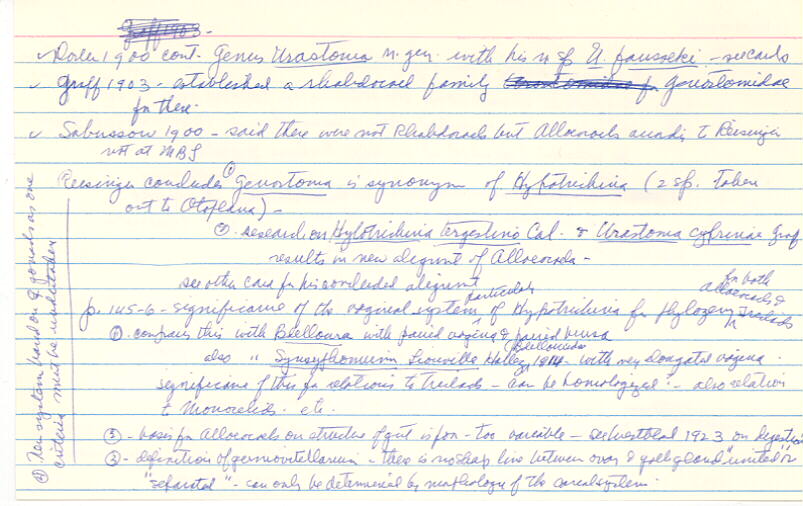 Graff 1903 -
✓ Dorler 1900 cont. Genus Urastoma n. gen. with his n sp U. fausseki - see cards
✓ Graff 1903 - established a rhabdocoel family Genostomidae
for these.
✓ Sabussow 1900 - said these were not Rhabdocoels but Alloeocoels accordg to Reisinger
not at MBL
Reisinger concludes ① Genostoma is synonym of Hypotrichina (2 sp. taken
out to Otoplana) -
②. research on Hypotrichina tergestina Cal. & Urastoma cyprinae Graf
results in new alignmt of Alloeocoela -
see other card for his concluded alignmt
p. 145-6 - significance of the vaginal system particularly of Hypotrichina for phylogeny for both alloeocoels & Triclads
① - compares this with Bdelloura with paired vagina & paired bursa
also " Synsiphonium Liouvillei Hallez, 1914 (Bdellouridae) - with very elongated vagina.
significance of this for relations to Triclads - can be homologized? - also relation
to Monocelids. etc.
⑤ - basis for Alloeocoels on structure of gut is poor - too variable - see Westblad 1923 on digestion
③ - definition of germovitellarium - there is no sharp line between ovary & yolk gland "united" or
"separated" - can only be determined by morphology of the canal system.
④ New system based on ♀ gonads as one
criteria must be undertaken